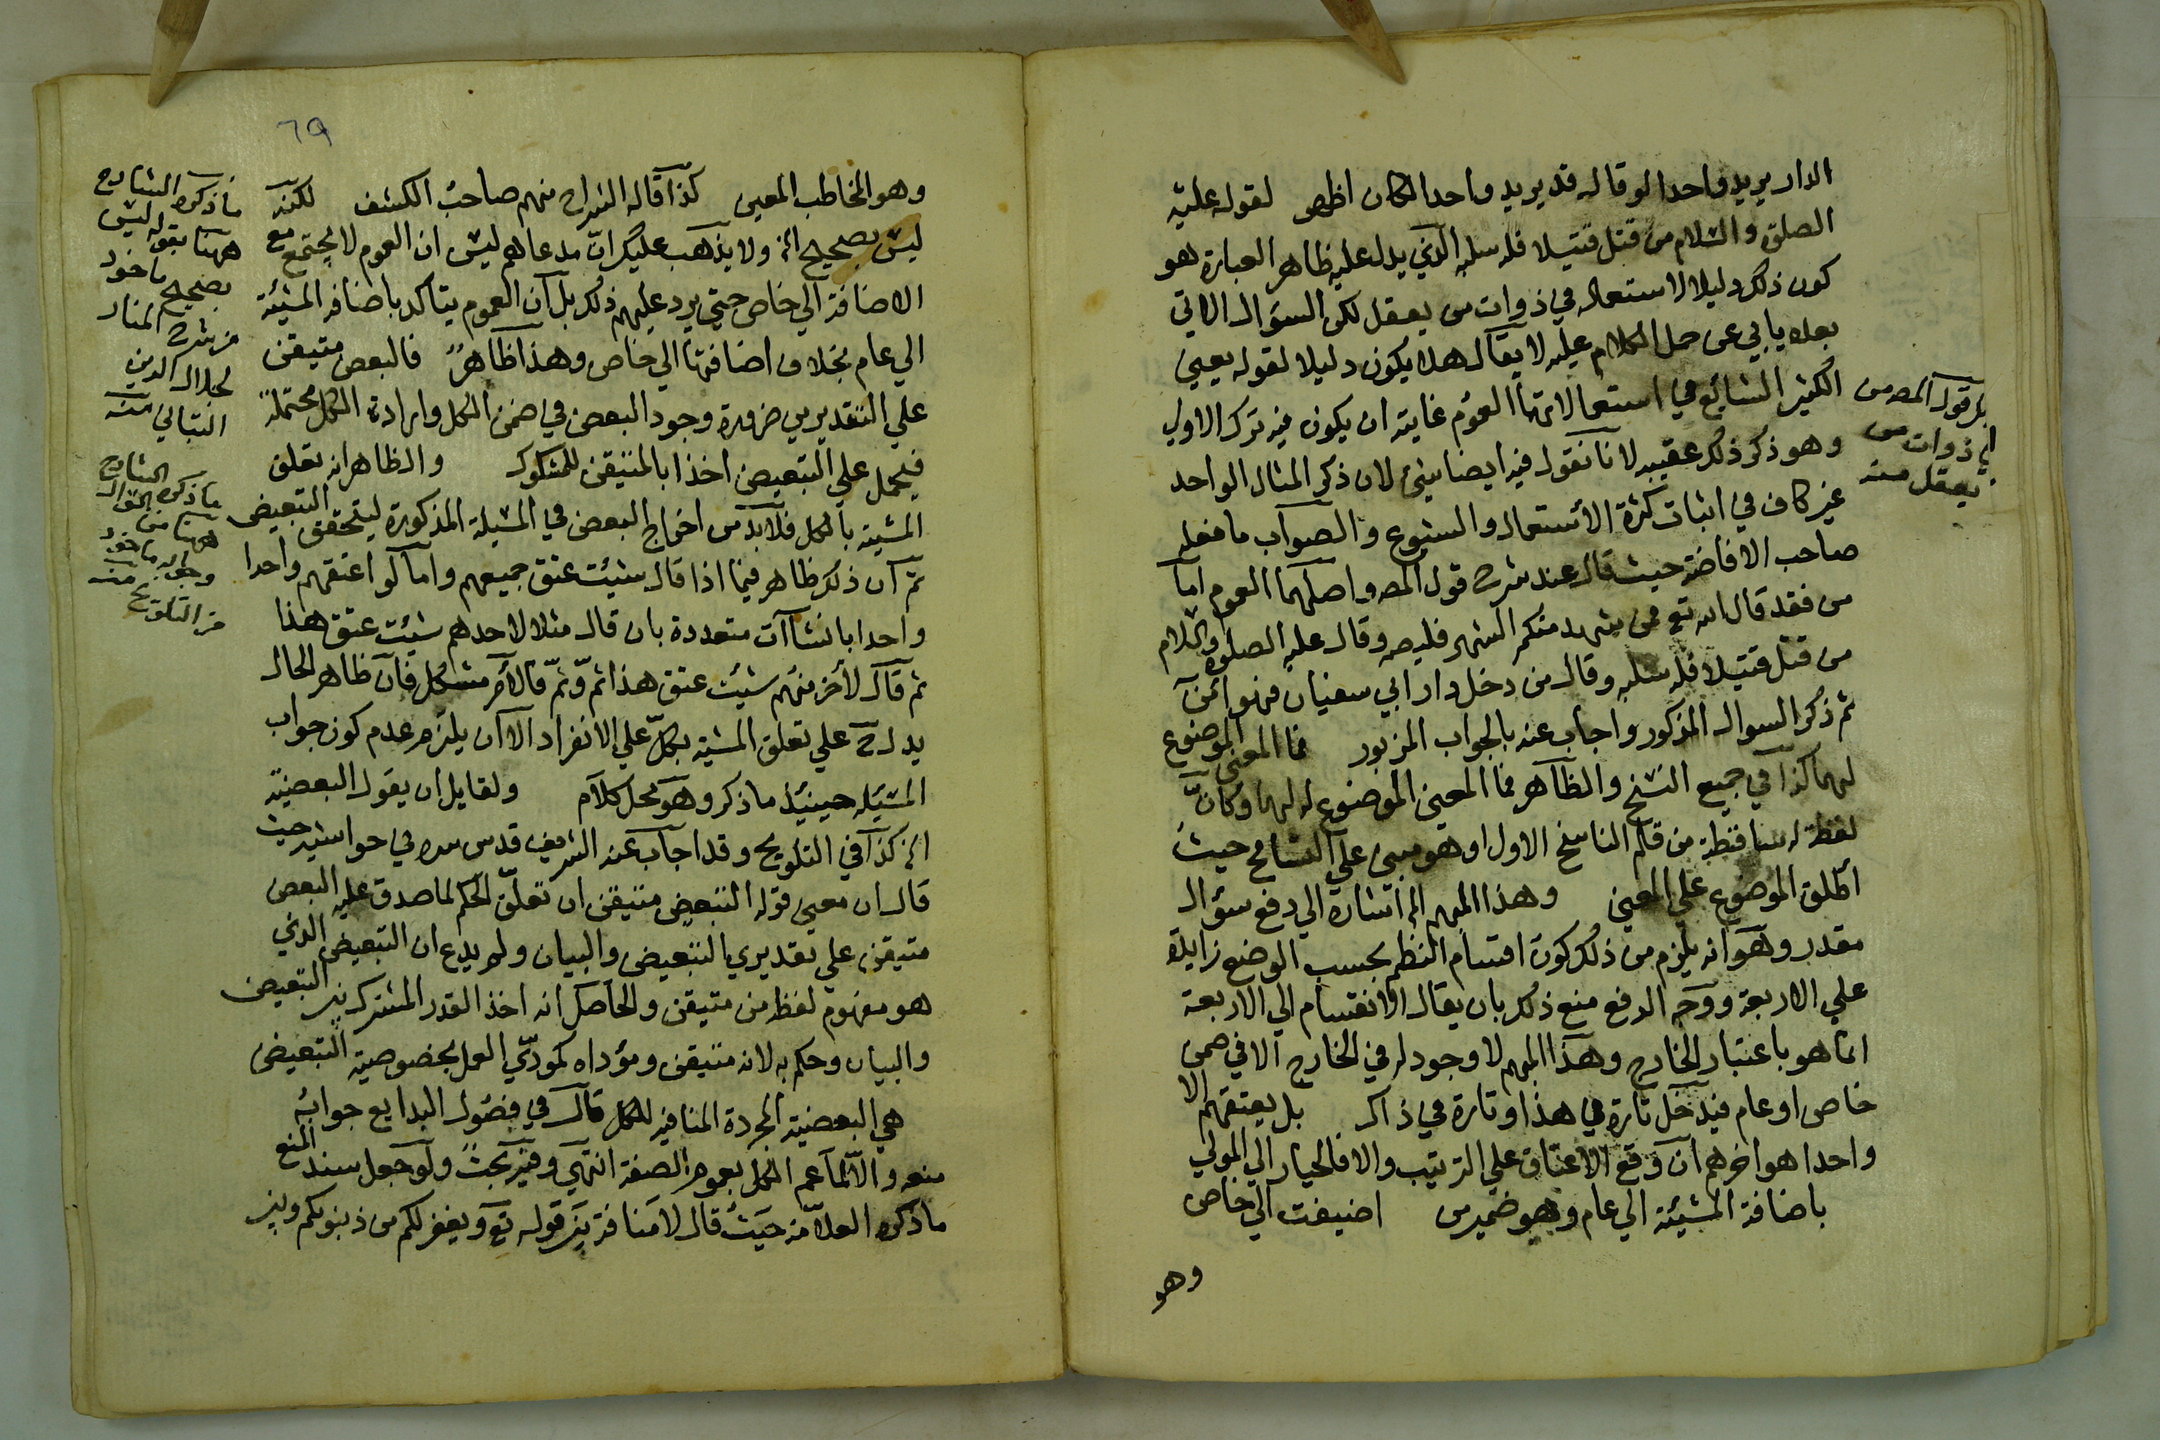 الدار يريد واحدا لو قال قد يريد واحدا لكان اظهر لقوله عليه
الصلوة والسلام من قتل قتيلا فله سلبه الذي يدل عليه ظاهر العبارة هو
كون ذلك دليلا لاستعماله في ذوات من يعقل لكن السؤال الاتي
بعده يابي عن حمل الكلام عليه لا يقال هلا يكون دليلا لقوله يعني
الكثير الشايع في استعمالاتها العموم غايته ان يكون فيه ترك الاولي
وهو ذكر ذلك عقيبه لانا نقول فيه ايضا شئ لان ذكر المثال الواحد
غير كاف في اثبات كثرة الاستعمال والشيوع والصواب ما فعله
صاحب الافاضة حيث قال عند شرح قول المصه واصلهما العموم اما
من فقد قال الله تع فمن شهد منكم الشهر فليصه وقال عليه الصلوة والسلام
من قتل قتيلا فله سلبه وقال من دخل دار ابي سفيان فهو آمن
ثم ذكر السوال المذكور واجاب عنه بالجواب المزبور فما المعنى الموضوع
لهما كذا في جميع النسخ والظاهر فما المعنى الموضوع له لهما وكانّ
لفظة له ساقطة من قلم الناسخ الاول او هو مبني علي التسامح حيث
اطلق الموضوع علي المعنى وهذا المبهم الخ اشارة الي دفع سؤال
مقدر وهو انه يلزم من ذلك كون اقسام النظم بحسب الوضع زايلة
علي الاربعة ووجه الدفع منع ذلك بان يقال الانقسام الي الاربعة
انما هو باعتبار الخارج وهذا المبهم لا وجود له في الخارج الا في ضمن
خاص او عام فيدخل تارة في هذا وتارة في ذاك بل يعتقهم الا
واحدا هو اخرهم ان وقع الاعتاق علي الترتيب والا فالخيار الي المولي
باضافة المشيئة الي عام وهو ضمير من اضيفت الي خاص
وهو
بل قول المصه من
اي ذوات من
يعقل منه
٦٩
وهو المخاطب المعين كذا قاله الشراح منهم صاحب الكشف لكنه
ليس بصحيح الخ ولا يذهب عليك ان مدعاهم ليس ان العموم لا يجتمع مع
الاضافة الي خاص حتي يرد عليهم ذلك بل ان العموم يتاكد باضافة المشيئة
الي عام بخلاف اضافتها الي خاص وهذا ظاهر فالبعض متيقن
علي التقديرين ضرورة وجود البعض في ضمن الكل وارادة الكل محتملة
فيحمل علي التبعيض اخذا بالمتيقن للمشكوك والظاهر انه تعلق
المشية بالكل فلا بد من اخراج البعض في المسئلة المذكورة ليتحقق التبعيض
ثم ان ذلك ظاهر فيما اذا قال شيئت عتق جميعهم واما لو اعتقهم واحدا
واحدا بانشاآت متعددة بان قال مثلا لاحدهم شيئت عتق هذا
ثم قال لآخر منهم شيئت عتق هذا ثم وثم فالامر مشكل فان ظاهر الحال
يدل علي تعلق المشية بكل علي الانفراد الا ان يلتزم عدم كون جواب
المسئلة حينئذ ما ذكر وهو محل كلام ولقايل ان يقول البعضية
الخ كذا في التلويح وقد اجاب عنه الشريف قدس سره في حواشيه حيث
قال ان معنى قوله التبعيض متيقن ان تعلق الحكم لما صدق عليه البعض
متيقن علي تقديري التبعيض والبيان ولم يدع ان التبعيض الذي
هو مفهوم لفظه من متيقن والحاصل انه اخذ القدر المشترك بين التبعيض
والبيان وحكم به لانه متيقن ومؤداه كمودّي العمل بخصوصية التبعيض
هي البعضية المجردة المنافية للكل قال في فصول البدايع جوابه
منعه والا لما عم الكل بعموم الصفة انتهي وفيه بحث ولو جعل سند المنع
ما ذكره العلامة حيث قال لا منافة بين قوله تع ويغفر لكم من ذنوبكم وبين
ما ذكره الشارح
ههنا بقوله ليس
بصحيح ماخوذ
من شرح المنار
لجلال الدين
التباني منه
ما ذكره الشارح
ههنا من السؤال
وجوابه ماخوذ
من التلويح منه